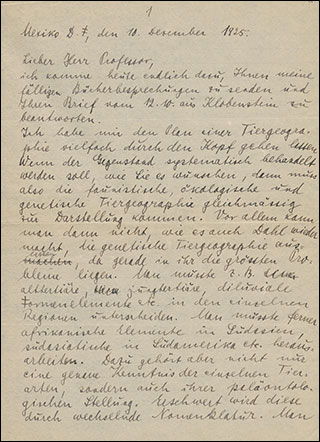 1
Mexiko D. F., den 10. Dezember 1925.
Lieber Herr Professor,
ich komme heute endlich dazu, Ihnen meine
fälligen Bücherbesprechungen zu senden und
Ihren Brief vom 12. 10. aus Klobenstein zu
beantworten.
Ich habe mir den Plan einer Tiergeogra-
phie vielfach durch den Kopf gehen lassen.
Wenn der Gegenstand systematisch behandelt
werden soll, wie Sie es wünschen, dann muss
also die faunistische, ökologische und
genetische Tiergeographie gleichmässig
zur Darstellung kommen. Vor allem kann
man dann nicht, wie es auch Dahl wieder
macht, die genetische Tiergeographie aus-
machen, da gerade in ihr die grössten Pro-
bleme liegen. Man müsste z. B.
alttertiäre, jungtertiäre, diluviale
Formenelemente etc. in den einzelnen
Regionen unterscheiden. Man müsste ferner
afrikanische Elemente in Südasien,
südasiatische in Südamerika etc. heraus-
arbeiten. Dazu gehört aber nicht nur
eine genaue Kenntnis der einzelnen Tier-
arten, sondern auch ihrer paläontolo-
gischen Stellung. Erschwert wird diese
durch wechselnde Nomenklatur. Man